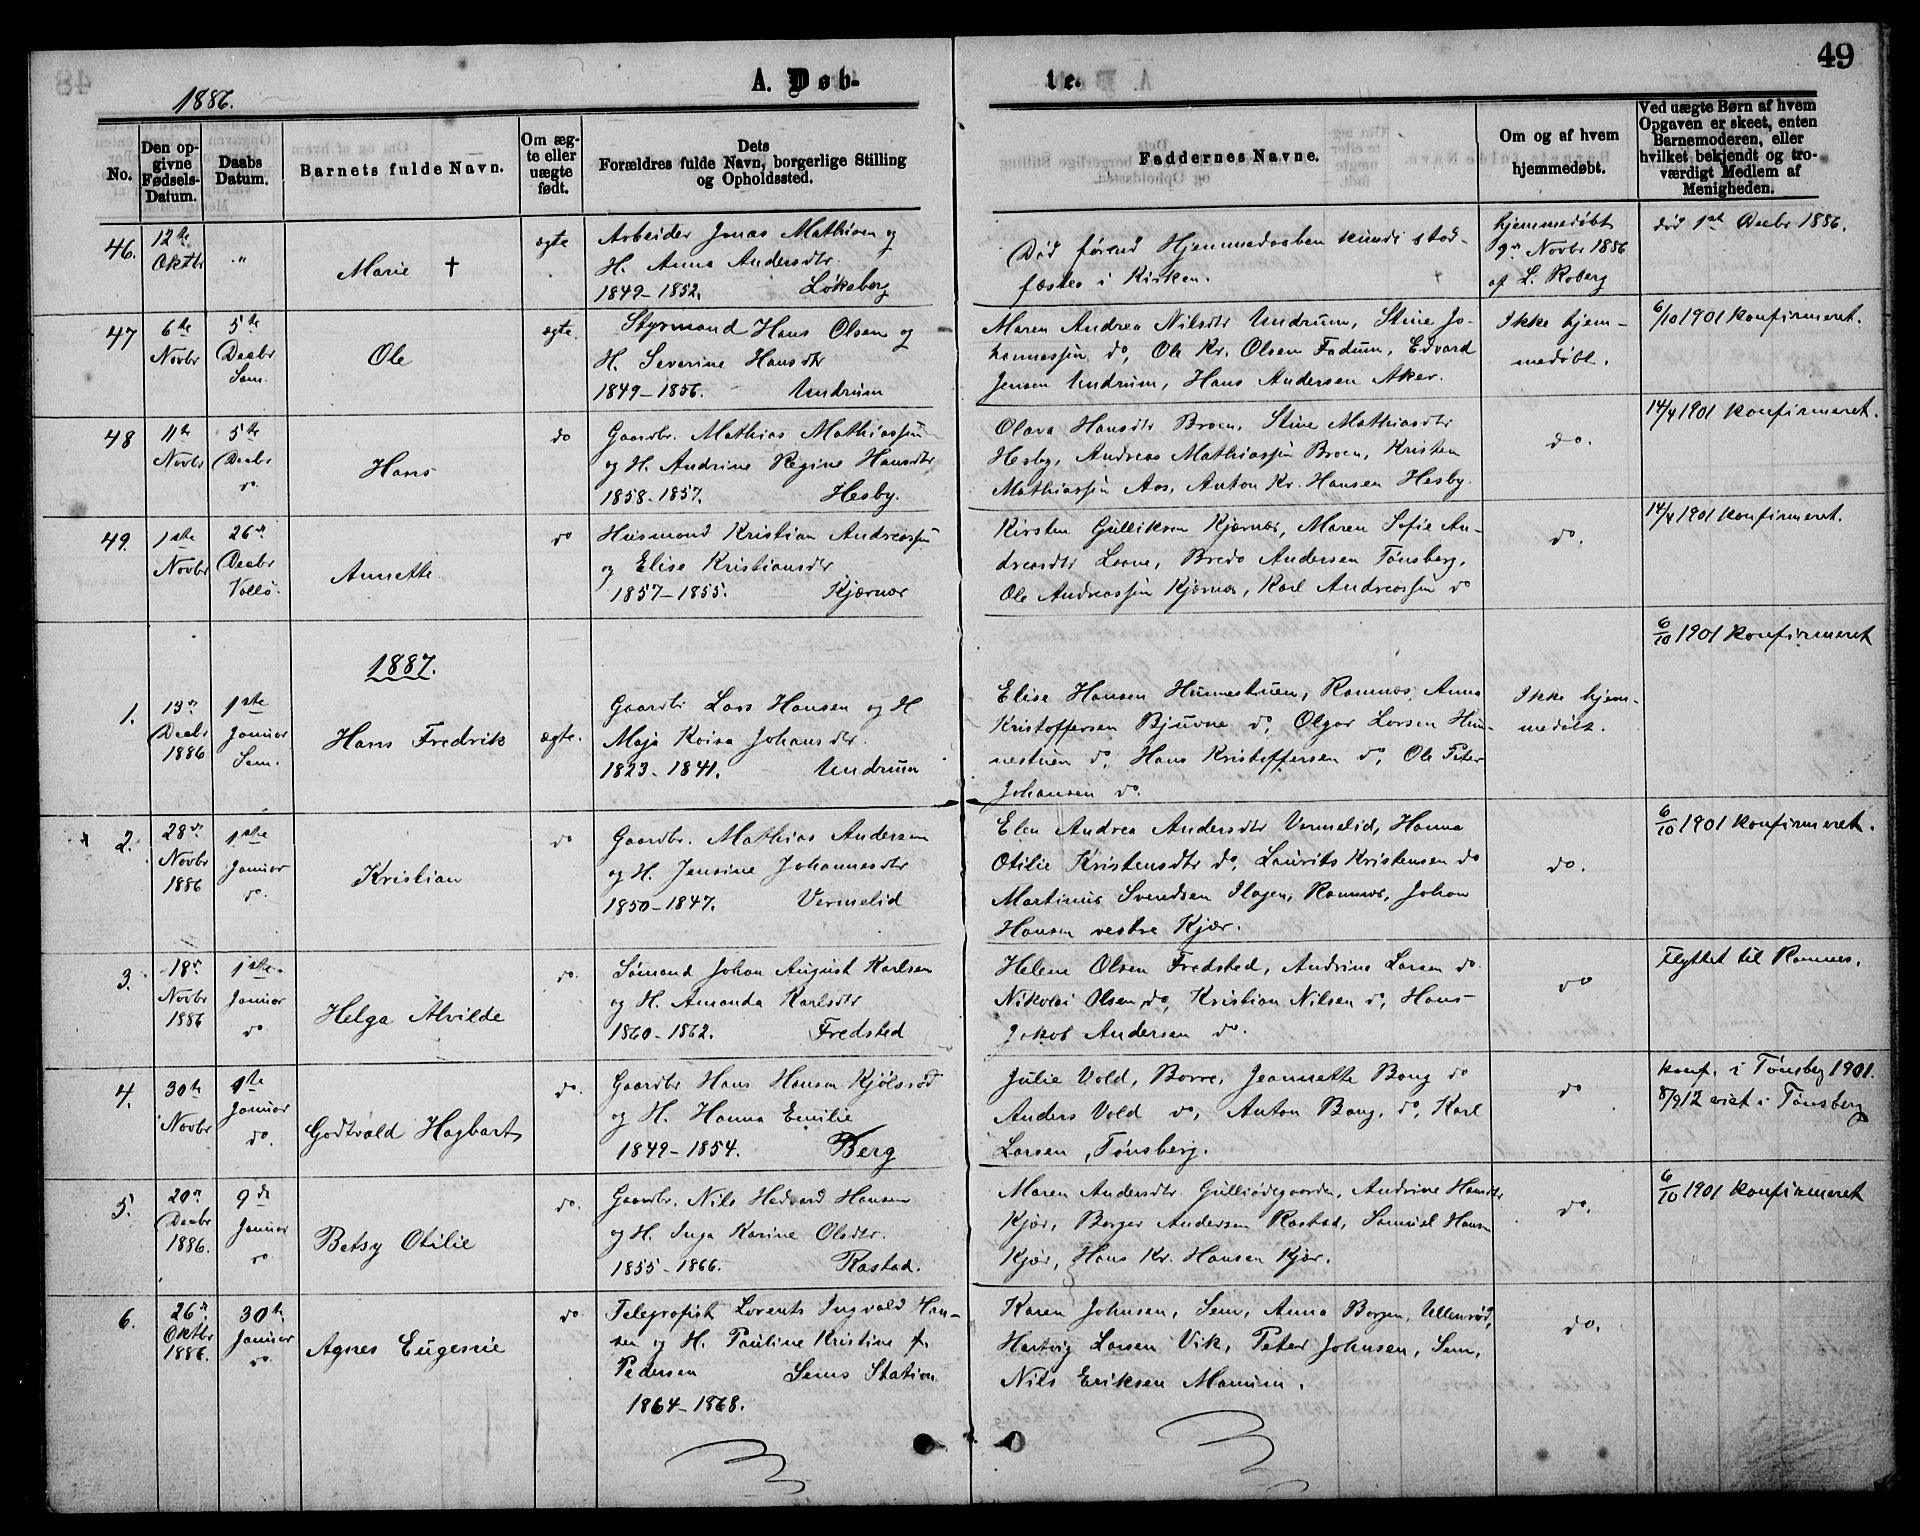 49
1886.
A. Døb-
te.
No.
Den op-
givne
Fødsels-
Datum.
Daabs
Datum.
Barnets fulde Navn.
Om æg-
te eller
uægte
født.
Dets
Forældres fulde Navn, borgerlige Stilling
og Opholdssted.
Faddernes Navne.
Om og af hvem
hjemmedøbt.
Ved uægte Børn af hvem
Opgaven er skeet, enten
Barnemoderen, eller
hvilket bekjendt og tro-
værdigt Medlem af
Menigheden.
46.
12te
Oktbr
"
Marie †
ægte
Arbeider Jonas Mathisen og
H. Anna Andersdtr.
1849-1852. Løkeberg
Død førend Hjemmedaaben kunde stad-
fæstes i Kirken.
hjemmedøbt
9de Novbr 1886
af L. Roberg
død 1ste Decbr 1886.
47
6te
Novbr
5te
Decbr
Sem.
Ole
ægte.
Styrmand Hans Olsen og
H. Severine Hansdtr
1849-1856. Undrum
Maren Andrea Nilsdtr Undrum, Stine Jo-
hannessen do, Ole Kr. Olsen Fadum, Edvard
Jensen Undrum, Hans Andersen Aker.
Ikke hjem-
medøbt.
6/10 1901 konfirmeret.
48
11te
Novbr
5te
Decbr
do
Hans
do
Gaardbr. Mathias Mathiassen
og H. Andrine Regine Hansdtr
1858-1857. Hesby.
Olava Hansdtr Broen, Stine Mathiasdtr
Hesby, Andreas Mathiassen Broen, Kristen
Mathiassen Aas, Anton Kr. Hansen Hesby.
do.
14/4 1901 konfirmeret.
49.
1ste
Novbr
26de
Decbr
Vallø.
Annette.
do
Husmand Kristian Andreassen
og Elise Kristiansdtr
1857-1855. Kjærnes
Kirsten Gulliksen Kjærnes, Maren Sofie An-
dreasdtr Loone, Bredo Andersen Tønsberg,
Ole Andreassen Kjærnes, Karl Andreassen do
do.
14/4 1901 konfirmeret.
1887.
1.
13de
Decbr
1886
1ste
Januar
Sem.
Hans Fredrik
ægte.
Gaardbr Lars Hansen og H
Maja Kaisa Johansdtr.
1823-1841. Undrum
Elise Hansen Hunnestuen, Ramnes, Anna
Kristoffersen Bjuvne do, Olgar Larsen Hun-
nestuen do, Hans Kristoffersen do, Ole Peter
Johansen do.
Ikke hjem-
medøbt.
6/10 1901 konfirmeret
2.
28de
Novbr
1886
1ste
Januar
do.
Kristian
do
Gaardbr. Mathias Andersen
og H. Jensine Johannesdtr
1850-1847. Vermelid
Elen Andrea Andersdtr Vermelid, Hanna
Otilie Kristensdtr do, Laurits Kristensen do
Martinus Svendsen Ilagen, Ramnes, Johan
Hansen vestre Kjær.
do.
6/10 1901 konfirmeret.
3.
18de
Novbr
1886
1ste
Januar
do
Helga Alvilde
do.
Sømand Johan August Karlsen
og H. Amanda Karlsdtr
1860-1862. Fredsted
Helene Olsen Fredsted, Andrine Larsen do.
Nikolai Olsen do, Kristian Nilsen do, Hans
Jakob Andersen do.
do
Flyttet til Ramnes.
4.
30te
Novbr
1ste
Januar
do.
Godtvald Hagbart
do.
Gaardbr Hans Hansen Kjølsrød
og H. Hanna Emilie
1849-1854. Berg
Julie Vold, Borre, Jeannette Bang do
Anders Vold do, Anton Bang, do, Karl
Larsen, Tønsberg.
do
konf. i Tønsberg 1901.
8/912 viet i Tønsberg
5.
20de
Decbr
1886.
9de
Januar
do
Betsy Otilie
do.
Gaardbr. Nils Hedvard Hansen
og H. Inga Karine Olsdtr.
1855-1866. Rastad.
Maren Andersdtr. Gulliødegaarden, Andrine Hansdtr
Kjær, Borger Andersen Rastad, Samuel Hansen
Kjær, Hans Kr. Hansen Kjær.
do.
6/10 1901 konfirmeret
6.
26de
Oktbr
1886.
30te
Januar
do.
Agnes Eugenie
do.
Telegrafist Lorents Ingvald Han-
sen og H. Pauline Kristine f.
Pedersen Sems Station
1864-1868.
Karen Johnsen, Sem, Anna Borgen, Ullensrød,
Hartvig Larsen Vik, Peter Johnsen, Sem,
Nils Eriksen Manum.
do.